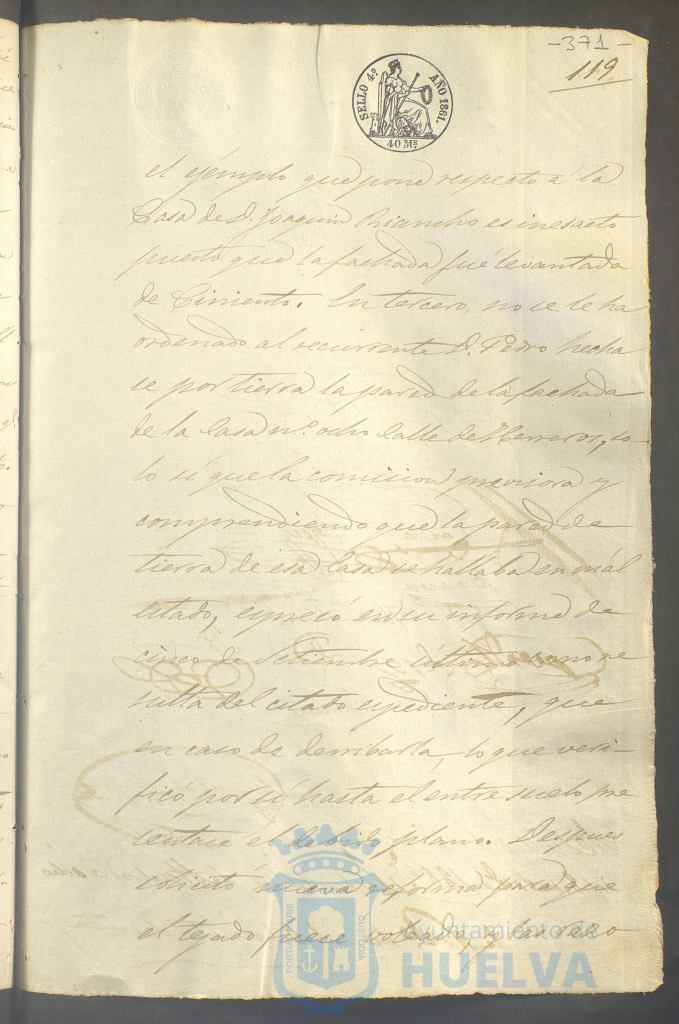 -371-
119
SELLO 4.º AÑO 1861.
40 Ms
el ejemplo que pone respecto á la
Casa de D. Joaquin Riancho es inesacto
puesto que la fachada fué levantada
de Cimiento. En tercero, no se le ha
ordenado al recurrente D. Pedro hecha
se por tierra la pared de la fachada
de la Casa nº. ocho Calle de Herreros, so-
lo sí que la comision previsora y
comprendiendo que la pared de
tierra de esa Casa se hallaba en mál
estado, espresó en su informe de
cinco de Setiembre último como re
sulta del citado espediente, que
en caso de derribarla, lo que veri-
ficó por sí hasta el entre suelo pre
sentase el debido plano. Despues
solicitó nueva reforma para que
el tejado fuese volado, y la razo
PORTUS MARIS
CUSTODIA
Ayuntamiento de
HUELVA